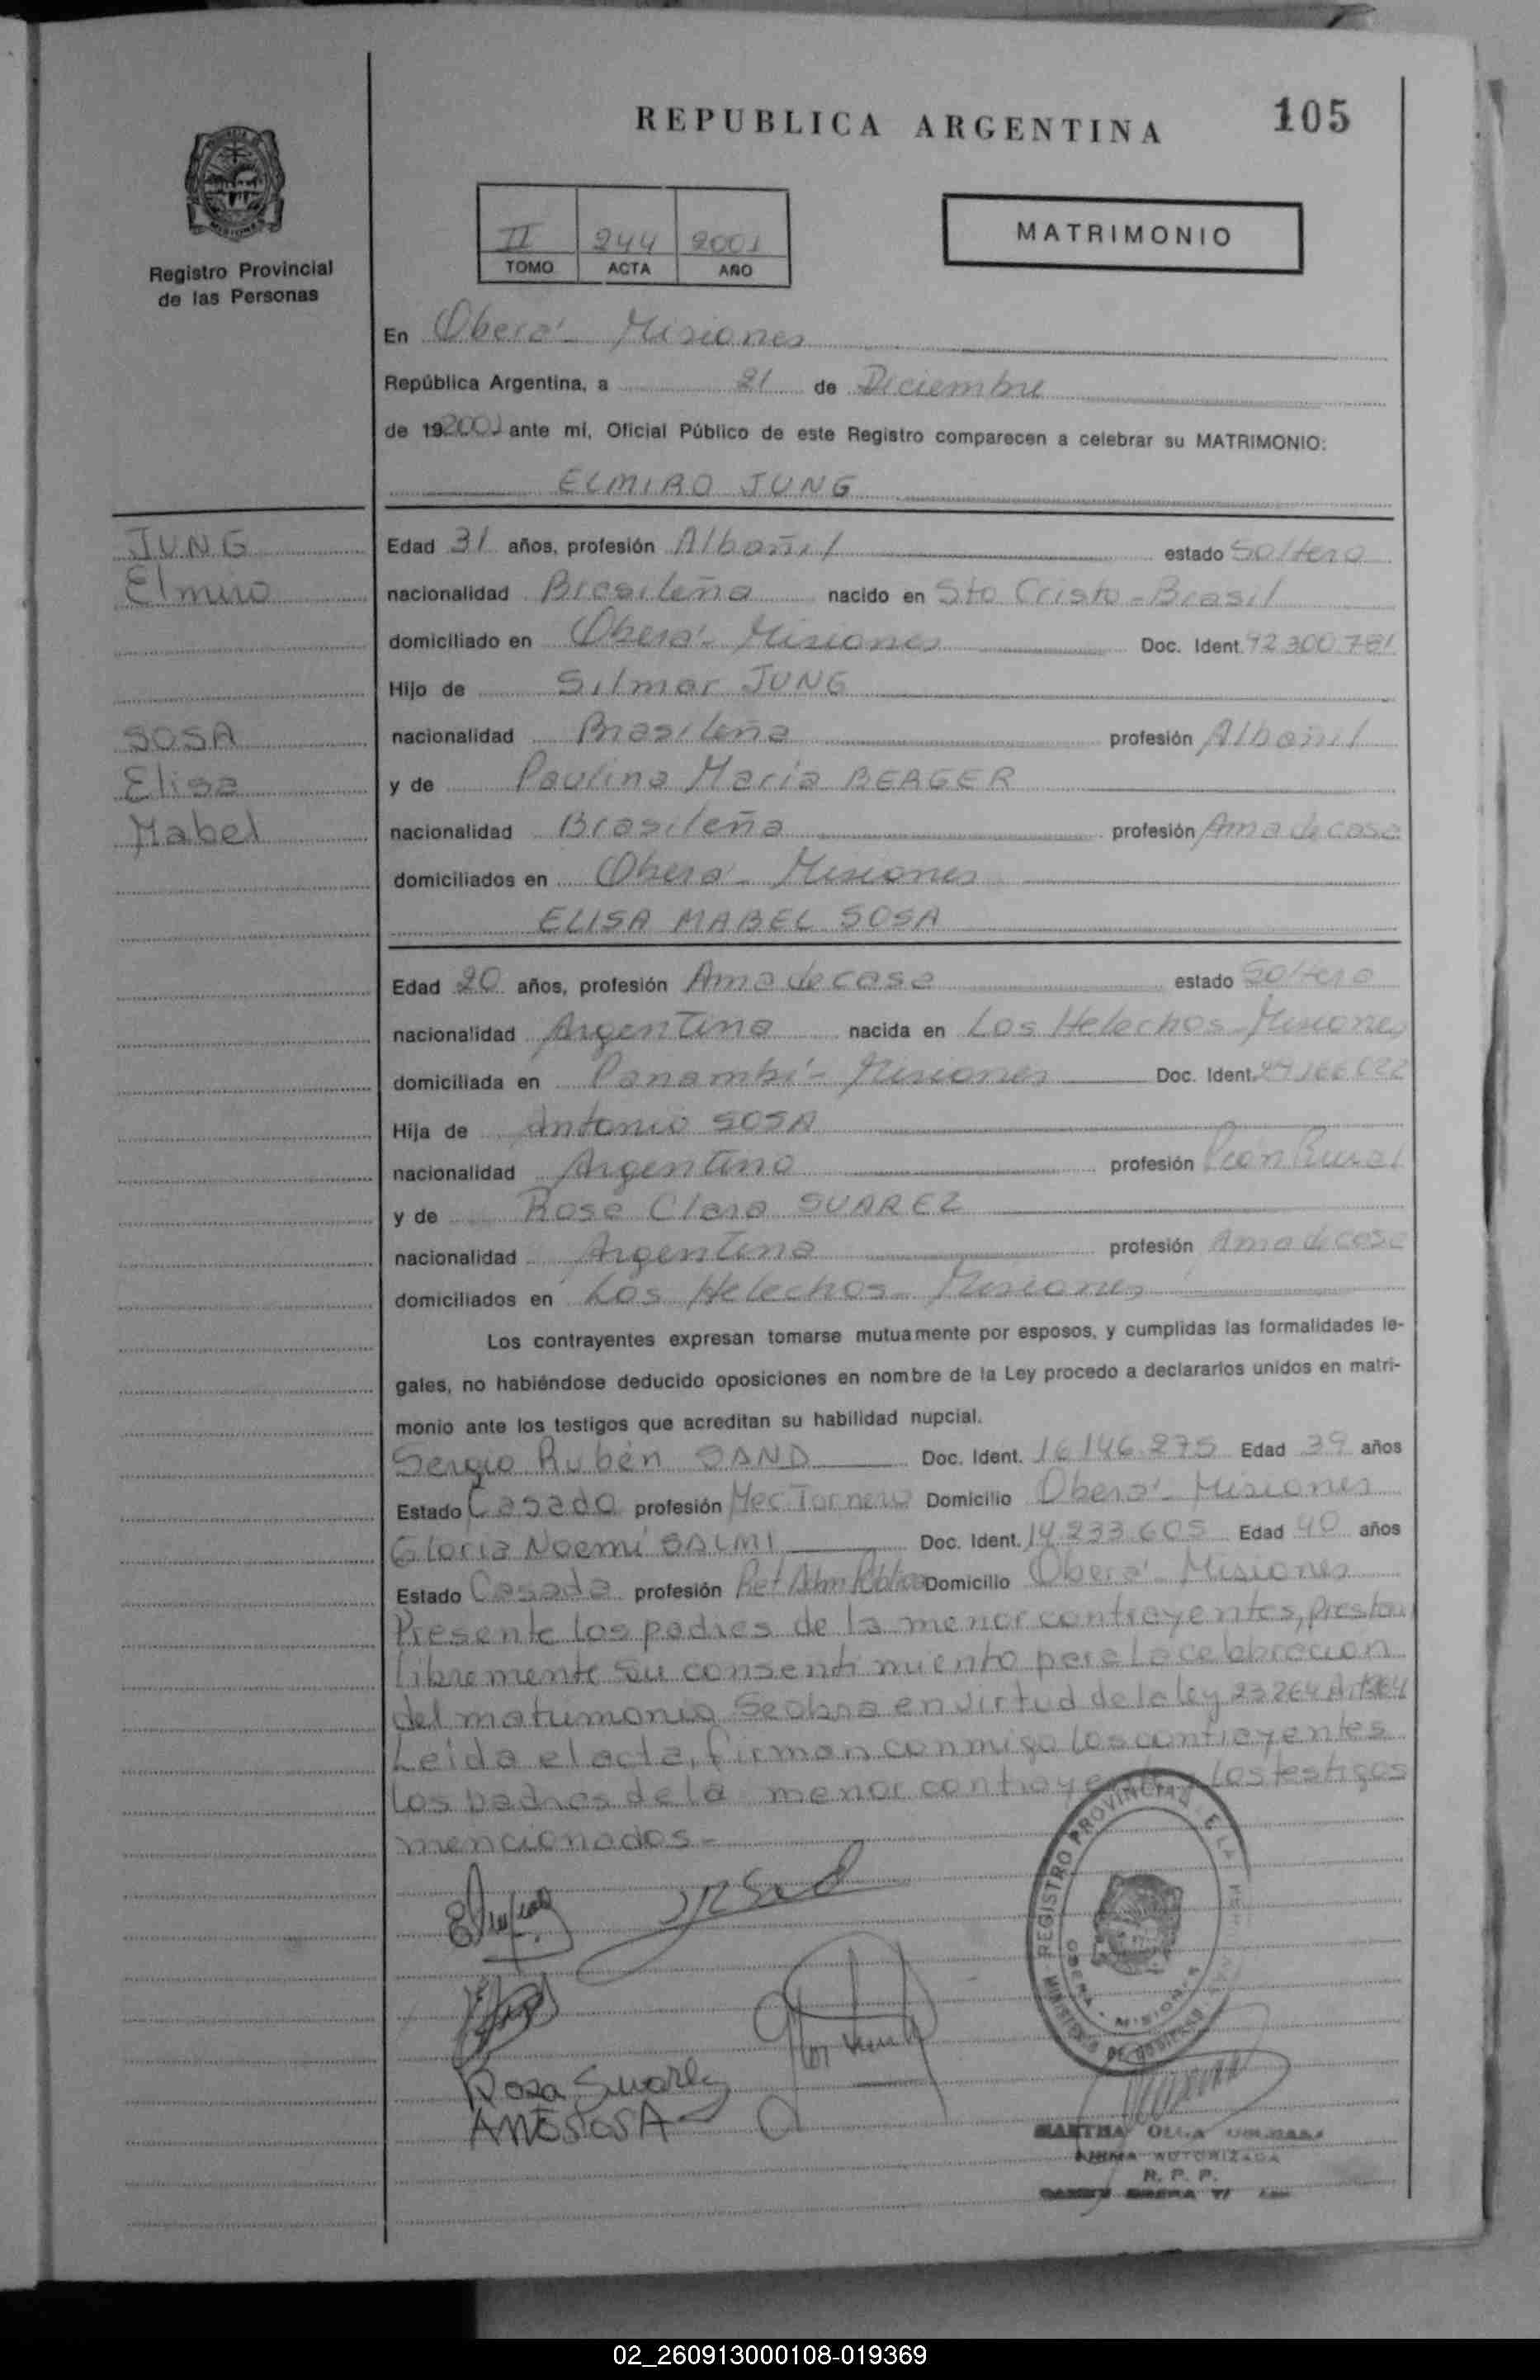 REPUBLICA ARGENTINA
105
Registro Provincial
de las Personas
II 244 2001
TOMO ACTA AÑO
MATRIMONIO
En Oberá - Misiones
República Argentina, a 21 de Diciembre
de 192001 ante mí, Oficial Público de este Registro comparecen a celebrar su MATRIMONIO:
ELMIRO JUNG
JUNG
Elmiro
SOSA
Elisa
Mabel
Edad 31 años, profesión Albañil estado Soltero
nacionalidad Brasileña nacido en Sto Cristo - Brasil
domiciliado en Oberá - Misiones Doc. Ident. 92.300.781
Hijo de Silmar JUNG
nacionalidad Brasileña profesión Albañil
y de Paulina María BERGER
nacionalidad Brasileña profesión Ama de casa
domiciliados en Oberá - Misiones
ELISA MABEL SOSA
Edad 20 años, profesión Ama de casa estado Soltera
nacionalidad Argentina nacida en Los Helechos - Misiones
domiciliada en Panambí - Misiones Doc. Ident.
Hija de Antonio SOSA
nacionalidad Argentina profesión Peon Rural
y de Rosa Clara SUAREZ
nacionalidad Argentina profesión Ama de casa
domiciliados en Los Helechos - Misiones
Los contrayentes expresan tomarse mutuamente por esposos, y cumplidas las formalidades le-
gales, no habiéndose deducido oposiciones en nombre de la Ley procedo a declararlos unidos en matri-
monio ante los testigos que acreditan su habilidad nupcial.
Sergio Rubén SAND Doc. Ident. 16.146.275 Edad 39 años
Estado Casado profesión Mec Tornero Domicilio Oberá - Misiones
Gloria Noemí SALMI Doc. Ident. 14.233.605 Edad 40 años
Estado Casada profesión Ret Adm Pública Domicilio Oberá - Misiones
Presente los padres de la menor contrayentes, prestan
libremente su consentimiento para la celebración
del matrimonio Se obra en virtud de la ley 23264 Art
Leida el acta, firman conmigo los contrayentes
los padres de la menor contrayente los testigos
mencionados -
Rosa Suarez
ANTOSOSA
REGISTRO PROVINCIAL DE LAS PERSONAS
MINISTERIO DE GOBIERNO
OBERA - MISIONES
MARTHA OLGA
FIRMA AUTORIZADA
R. P. P.
02_260913000108-019369